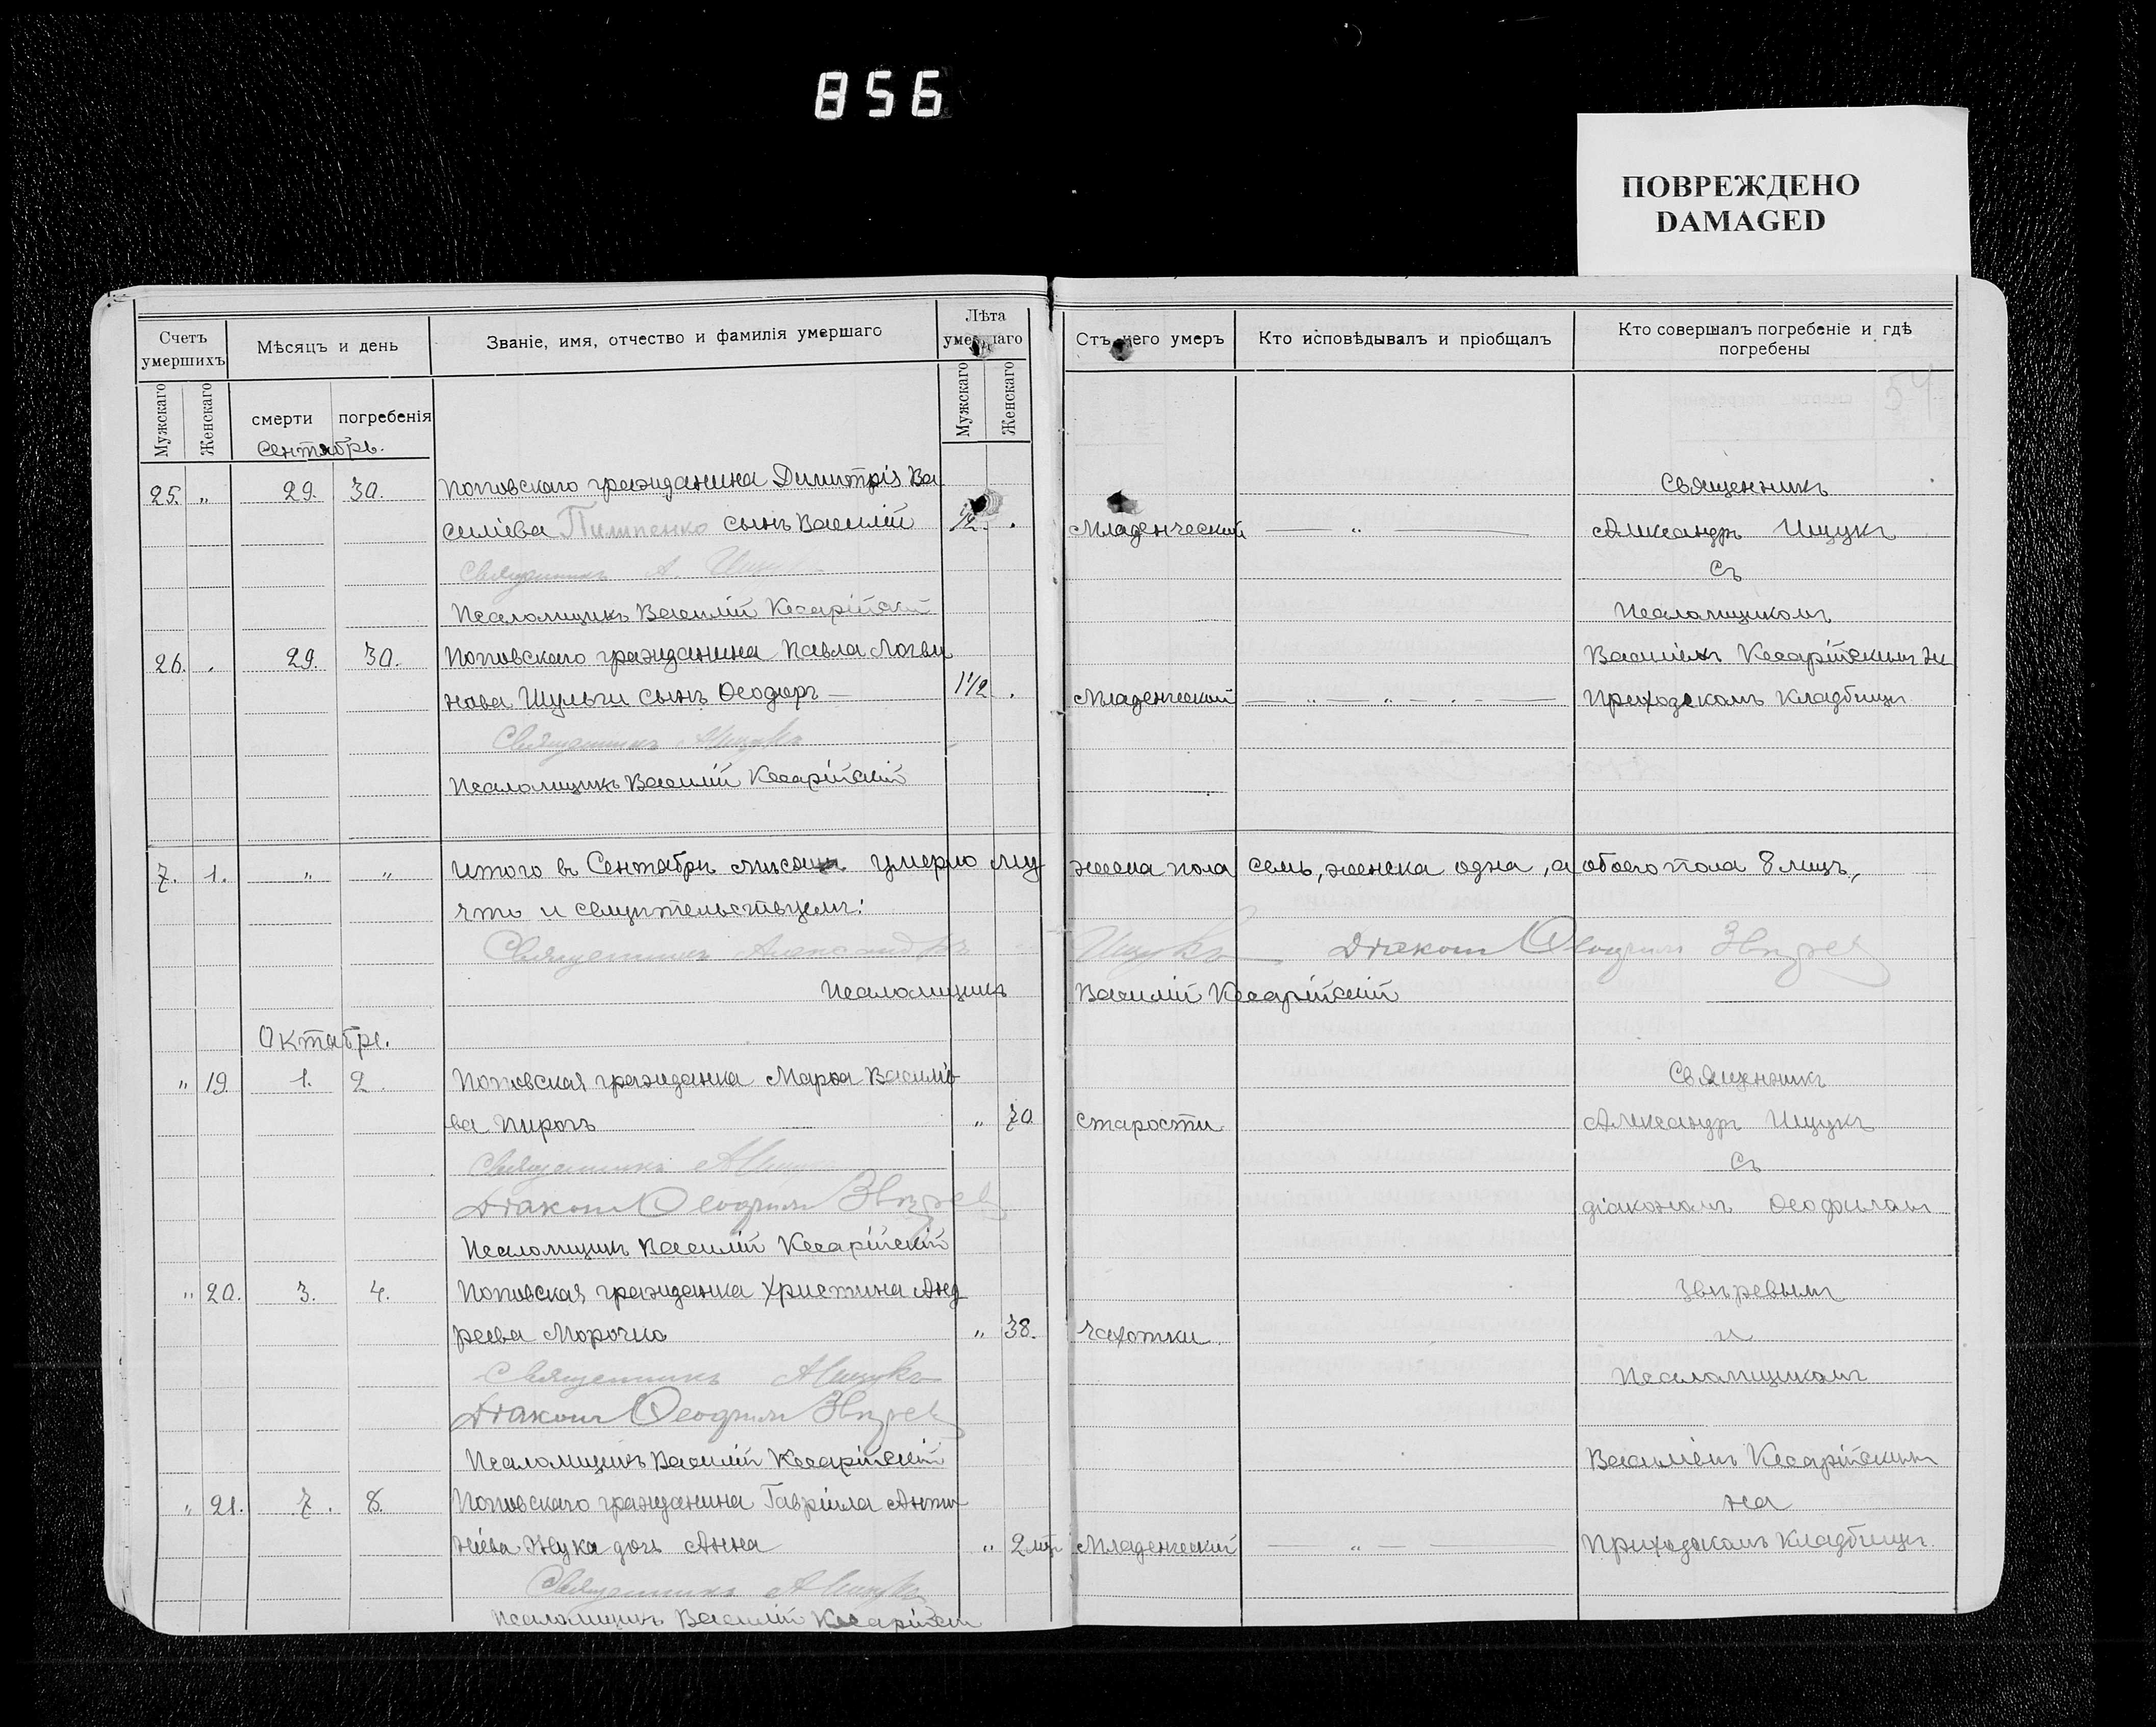 856
ПОВРЕЖДЕНО
DAMAGED
Счетъ умершихъ
Мѣсяцъ и день
Званіе, имя, отчество и фамилія умершаго
Лѣта умершаго
Отъ чего умеръ
Кто исповѣдывалъ и пріобщалъ
Кто совершалъ погребеніе и гдѣ погребены
Мужскаго
Женскаго
смерти
погребенія
Мужскаго
Женскаго
54
Сентябрь.
25. " 29. 30. Поповскаго гражданина Димитрія Ва Священникъ
силіева Пилипенко сынъ Василій 1/2 . Младенческой — " — Александръ Ищукъ
Священникъ А. Ищукъ съ
Псаломщикъ Василій Кесарійскій Псаломщикомъ
26. . 29. 30. Поповскаго гражданина Павла Логви Василіемъ Кесарійскимъ на
нова Шульги сынъ Ѳеодоръ — 1 1/2 . Младенческой Приходскомъ кладбищѣ
Священникъ А Ищукъ
Псаломщикъ Василій Кесарійскій
7. 1. " " Итого въ Сентябрѣ мѣсяцѣ умерло му жеска пола семь, женска одна, а обоего пола 8 лицъ,
что и свидѣтельствуемъ:
Священникъ Александръ Ищукъ Діаконъ Ѳеофилъ Звѣревъ
Псаломщикъ Василій Кесарійскій
Октябрь.
" 19 1. 2. Поповская гражданка Марѳа Василіе Священникъ
ва Пирогъ " 70 старости Александръ Ищукъ
Священникъ А Ищукъ съ
Діаконъ Ѳеофилъ Звѣревъ діакономъ Ѳеофиломъ
Псаломщикъ Василій Кесарійскій
" 20. 3. 4. Поповская гражданка Христина Анд Звѣревымъ
реева Морочко " 38. чахотки и
Священникъ А Ищукъ Псаломщикомъ
Діаконъ Ѳеофилъ Звѣревъ
Псаломщикъ Василій Кесарійскій Василіемъ Кесарійскимъ
" 21. 7. 8. Поповскаго гражданина Гавріила на
ніева Жука дочь Анна " 2 Младенческой — " — Приходскомъ кладбищѣ.
Священникъ А Ищукъ
Псаломщикъ Василій Кесарійскій